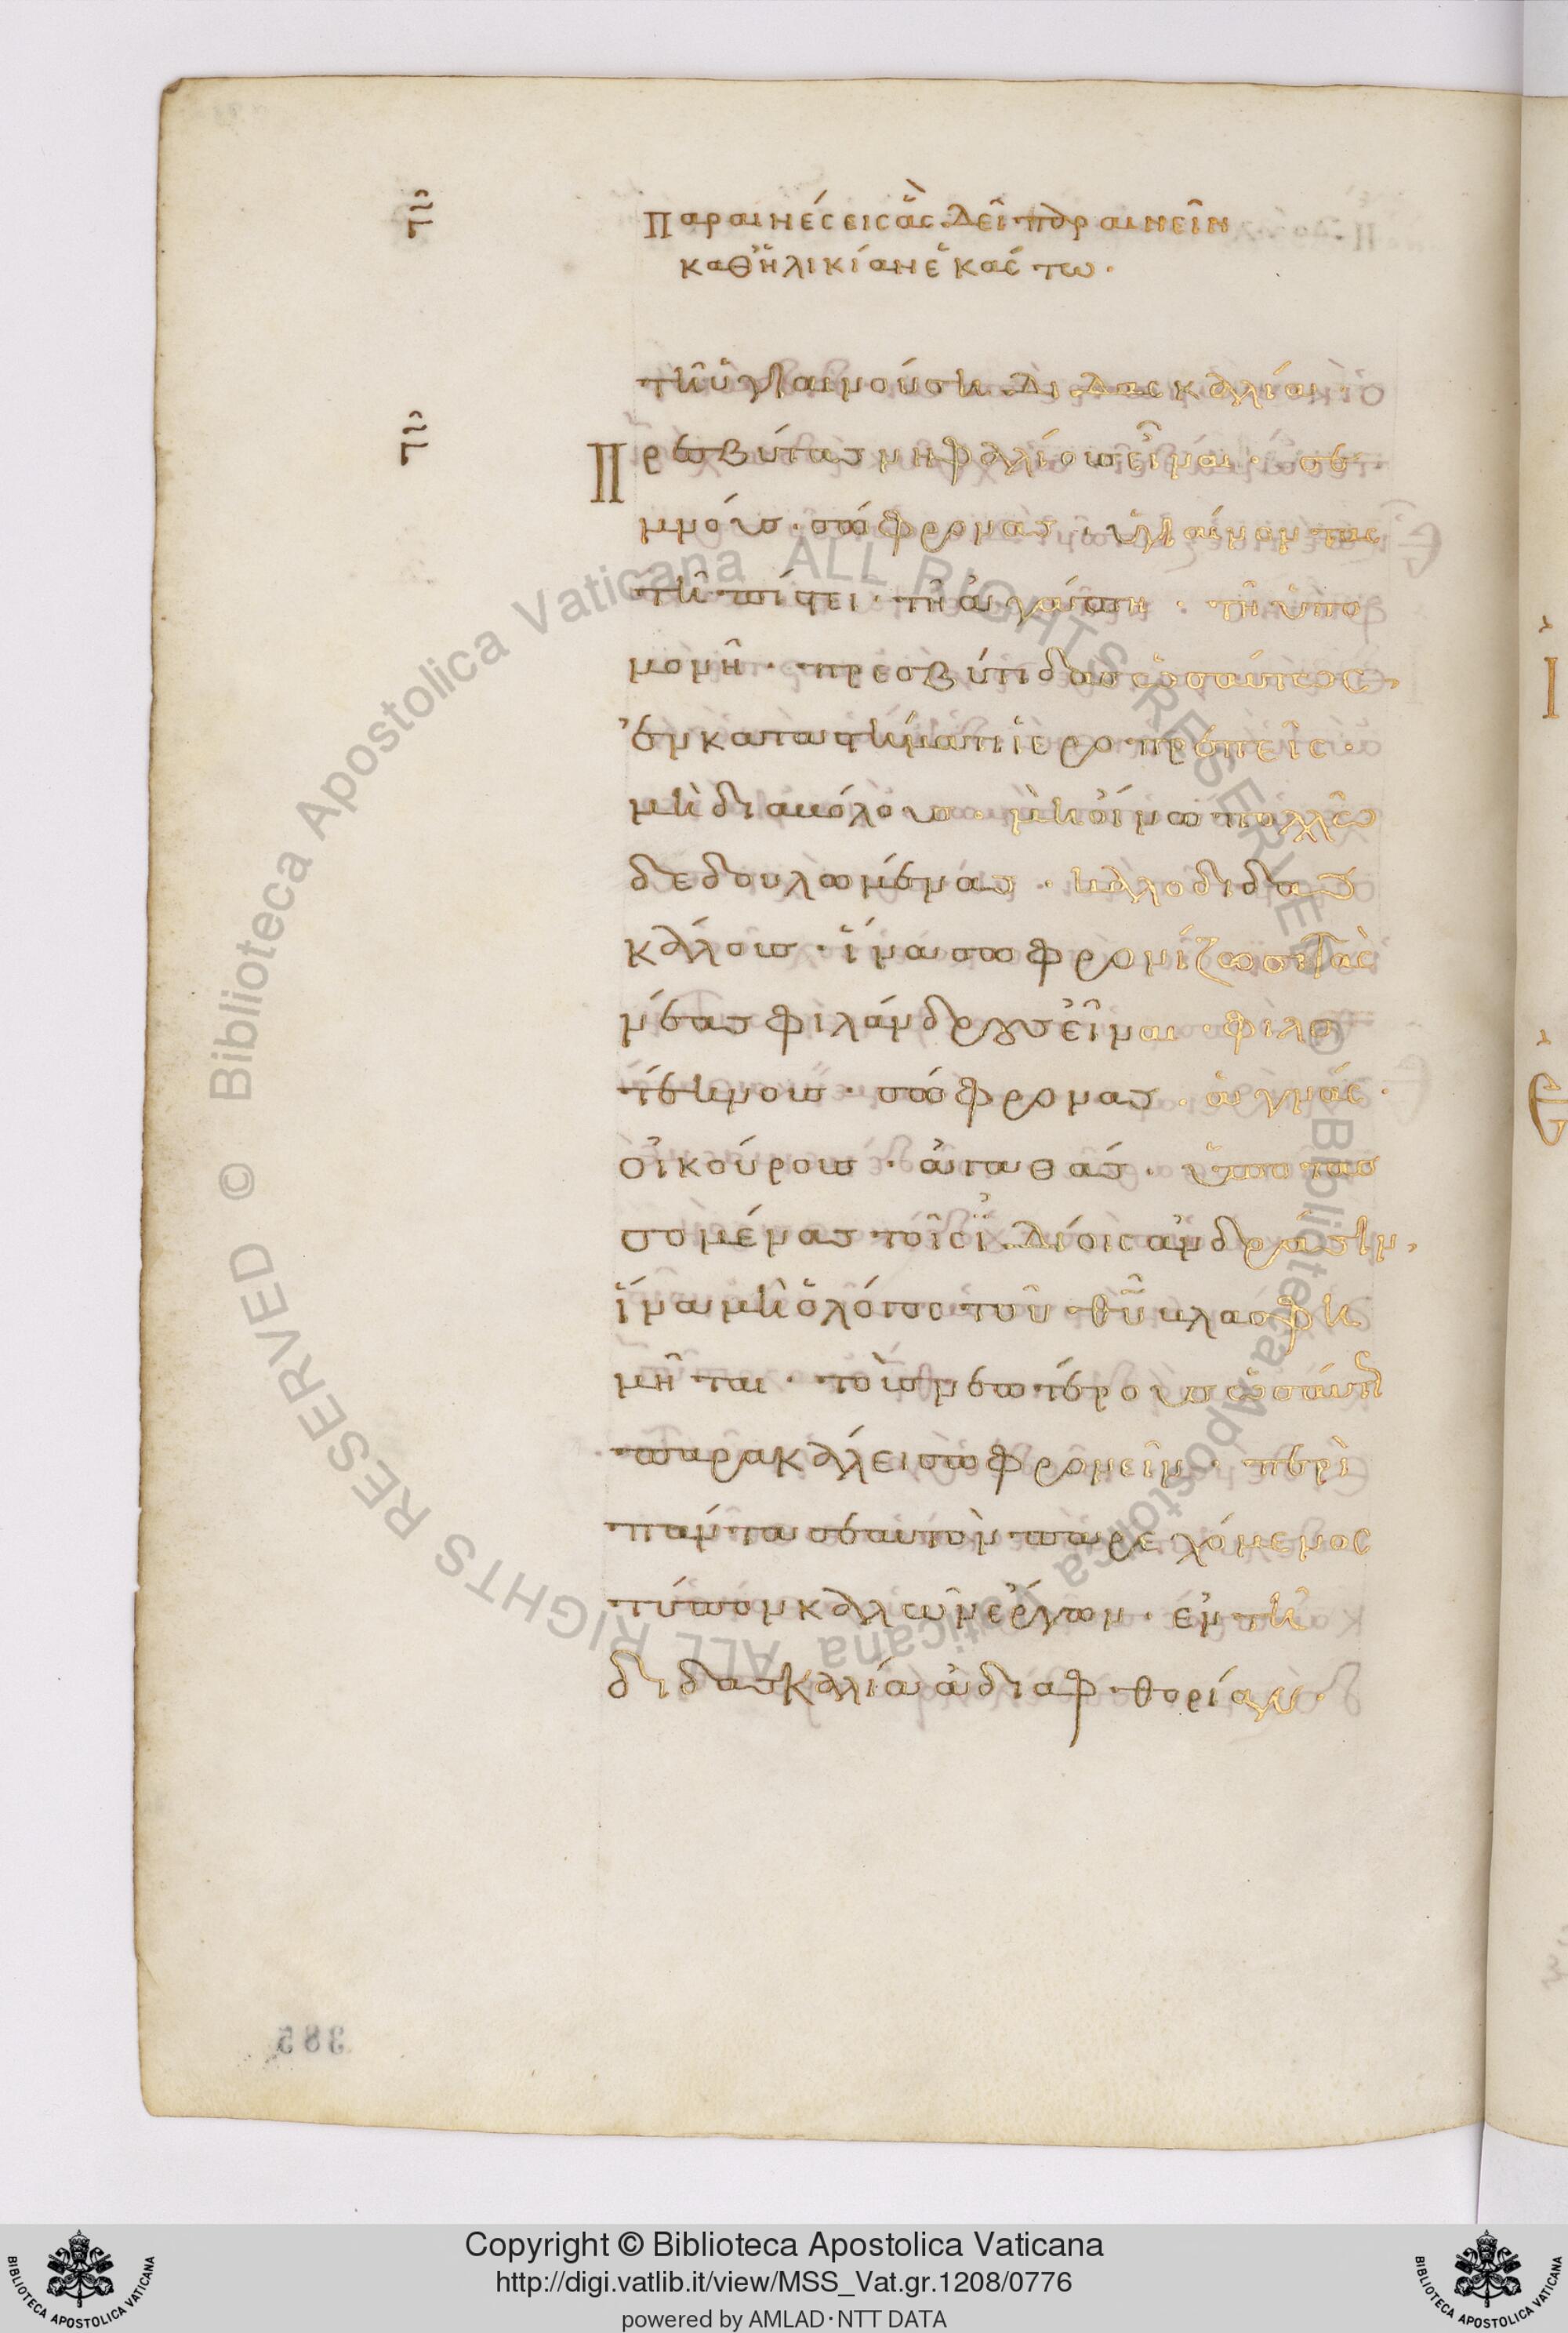 Παραινέσεις ἃς δεῖ παραινεῖν
καθ' ἡλικίαν ἑκάστω·
τῆ ὑγιαινούση διδασκαλίαι·
Πρεσβύτας νηφαλίους εἶναι· σε
μνούς· σώφρονας· ὑγιαίνοντας
τῆ πίστει· τῆ ἀγάπη· τῆ ὑπο
μονῆ· πρεσβύτιδας ὡσαύτως,
ἐν καταστήματι ἱεροπρεπεῖς·
μὴ διαβόλους· μὴ οἴνω πολλῶ
δεδουλωμένας· καλοδιδας
κάλους· ἵνα σωφρονίζωσι τὰς
νέας φιλάνδρους εἶναι· φιλο
τέκνους· σώφρονας· ἁγνάς·
οἰκούρους· ἀγαθάς· ὑποτασ
σομένας τοῖς ἰδίοις ἀνδράσιν,
ἵνα μὴ ὁ λόγος τοῦ θῦ βλασφη
μῆται· τοὺς νεωτέρους ὡσαύτ
παρακάλει σωφρονεῖν· περὶ
πάντα σεαυτὸν παρεχόμενος
τύπον καλῶν ἔργων· ἐν τῆ
διδασκαλία ἀδιαφθορίαν·
385
Copyright © Biblioteca Apostolica Vaticana
http://digi.vatlib.it/view/MSS_Vat.gr.1208/0776
powered by AMLAD·NTT DATA
BIBLIOTECA APOSTOLICA VATICANA
BIBLIOTECA APOSTOLICA VATICANA
© Biblioteca Apostolica Vaticana ALL RIGHTS RESERVED
© Biblioteca Apostolica Vaticana ALL RIGHTS RESERVED